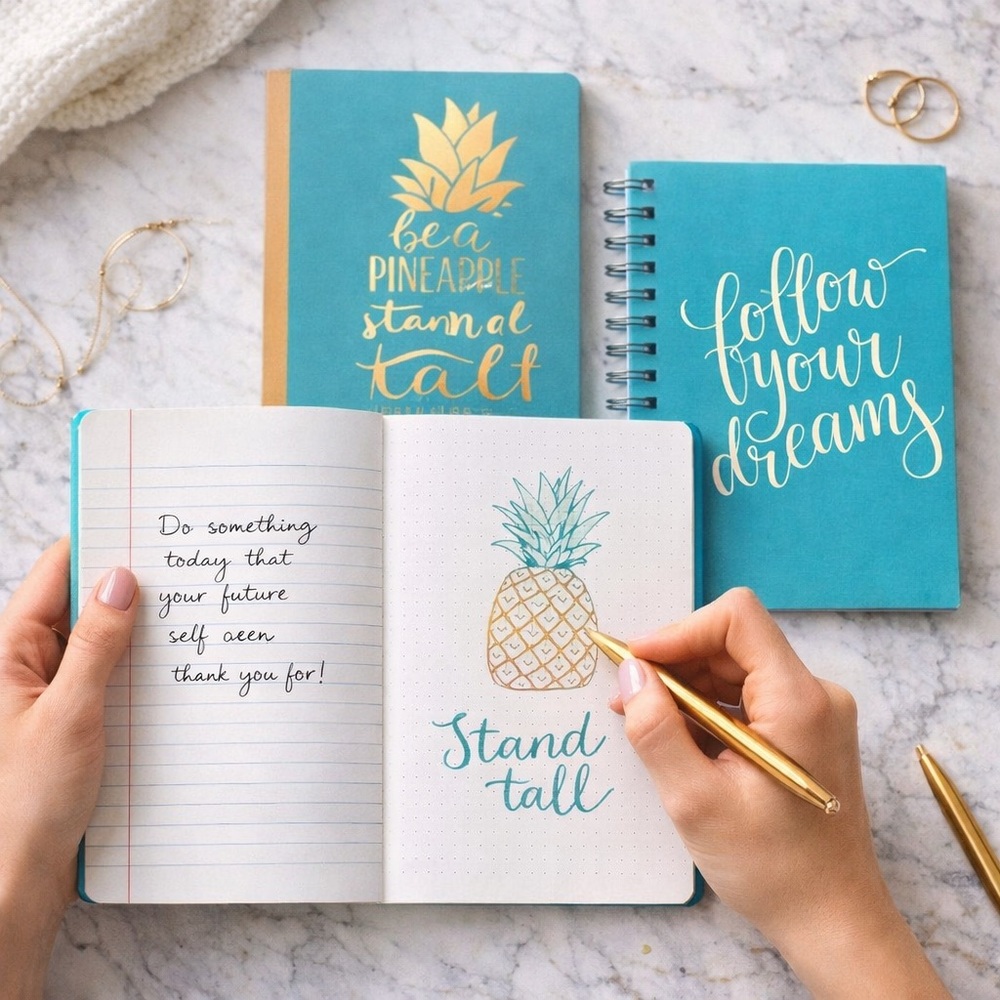 be a
PINEAPPLE
stannal
talt
follow
your
dreams
Do something
today that
your future
self aeen
thank you for!
Stand
tall